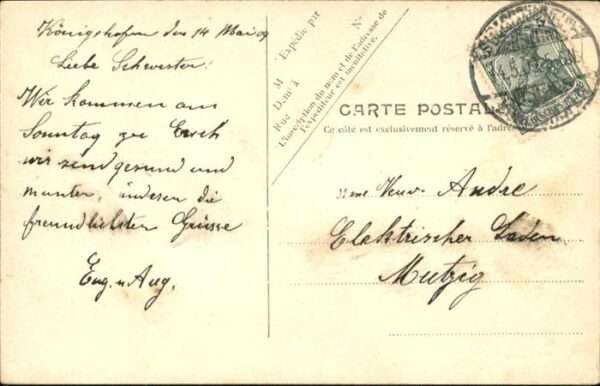 Königshofen des 14 Mai 09
Liebe Schwester!
Wir kommen am
Sonntag zu Euch
wir send gesund und
munter, indessen die
freundlichsten Grüsse
Eug. u Aug.
Expédié par
M
N°
Demt à
Rue
L'inscription du nom et de l'adresse de
l'expéditeur est facultative.
CARTE POSTALE
Ce côté est exclusivement réservé à l'adresse
Mme Veuv. Andre
Elektrischer Laden
Mutzig